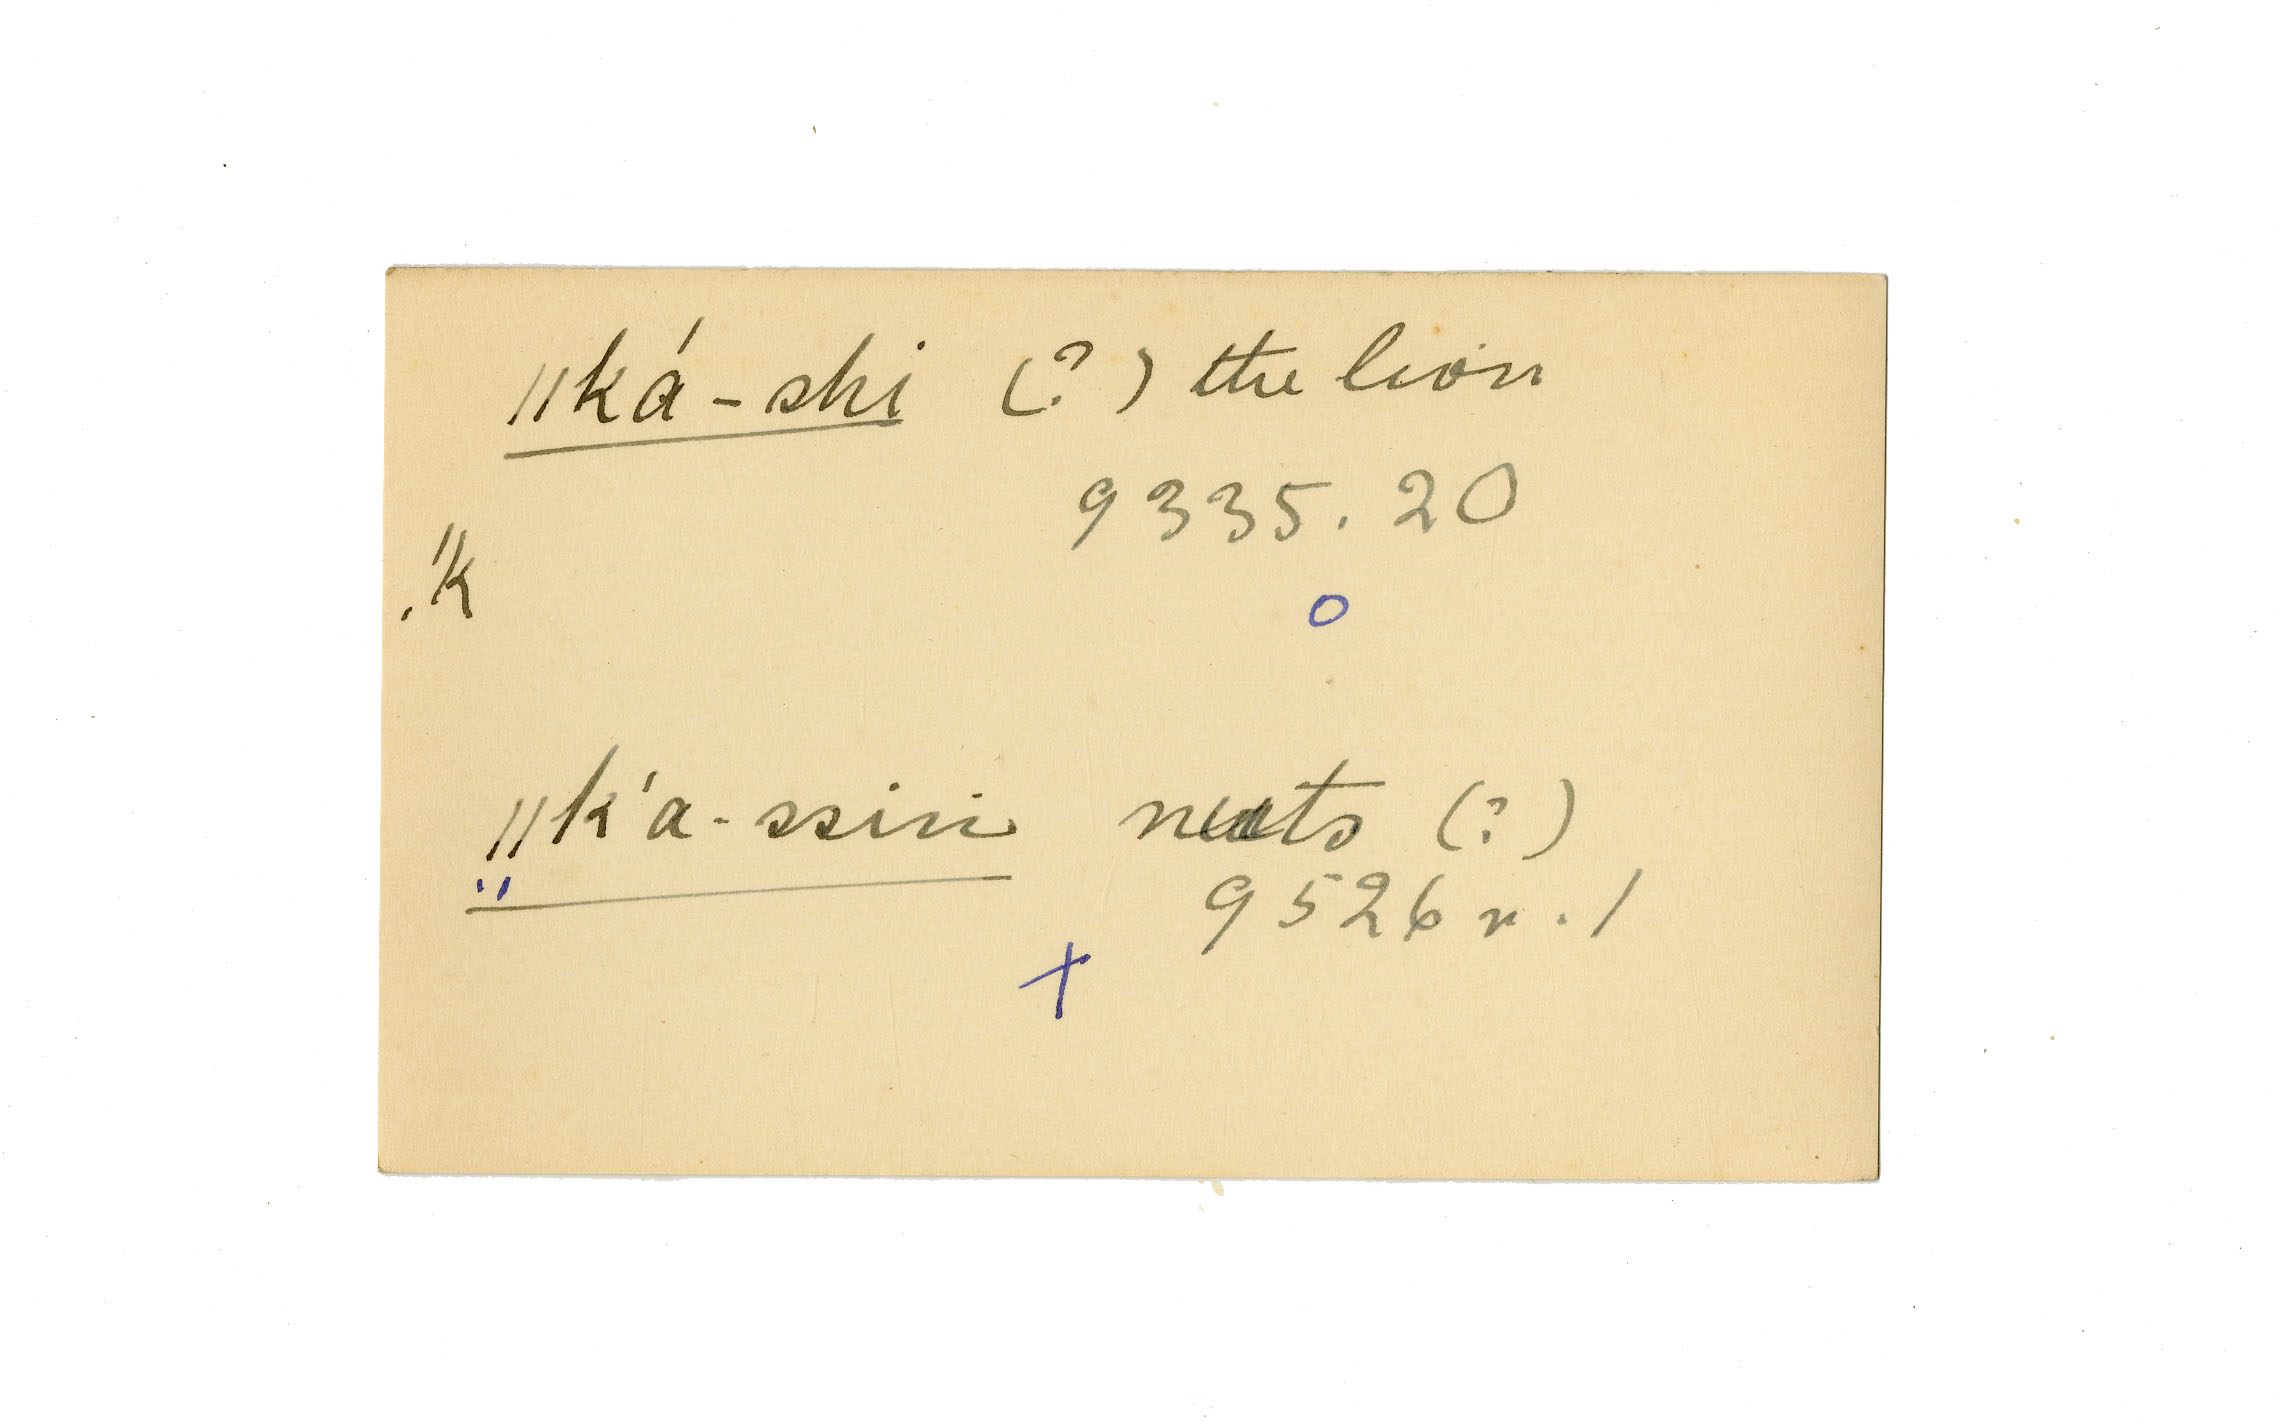 ǁká-shi (?) the lion
9335.20
ǁk
o
ǁk'a-ssin nuts (?)
9526 r. 1
"
+